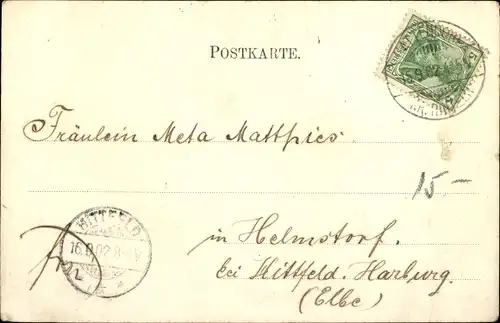 POSTKARTE.
Fräulein Meta Matthies
15-
in Helmstorf.
bei Hittfeld. Harburg.
(Elbe)
HITTFELD